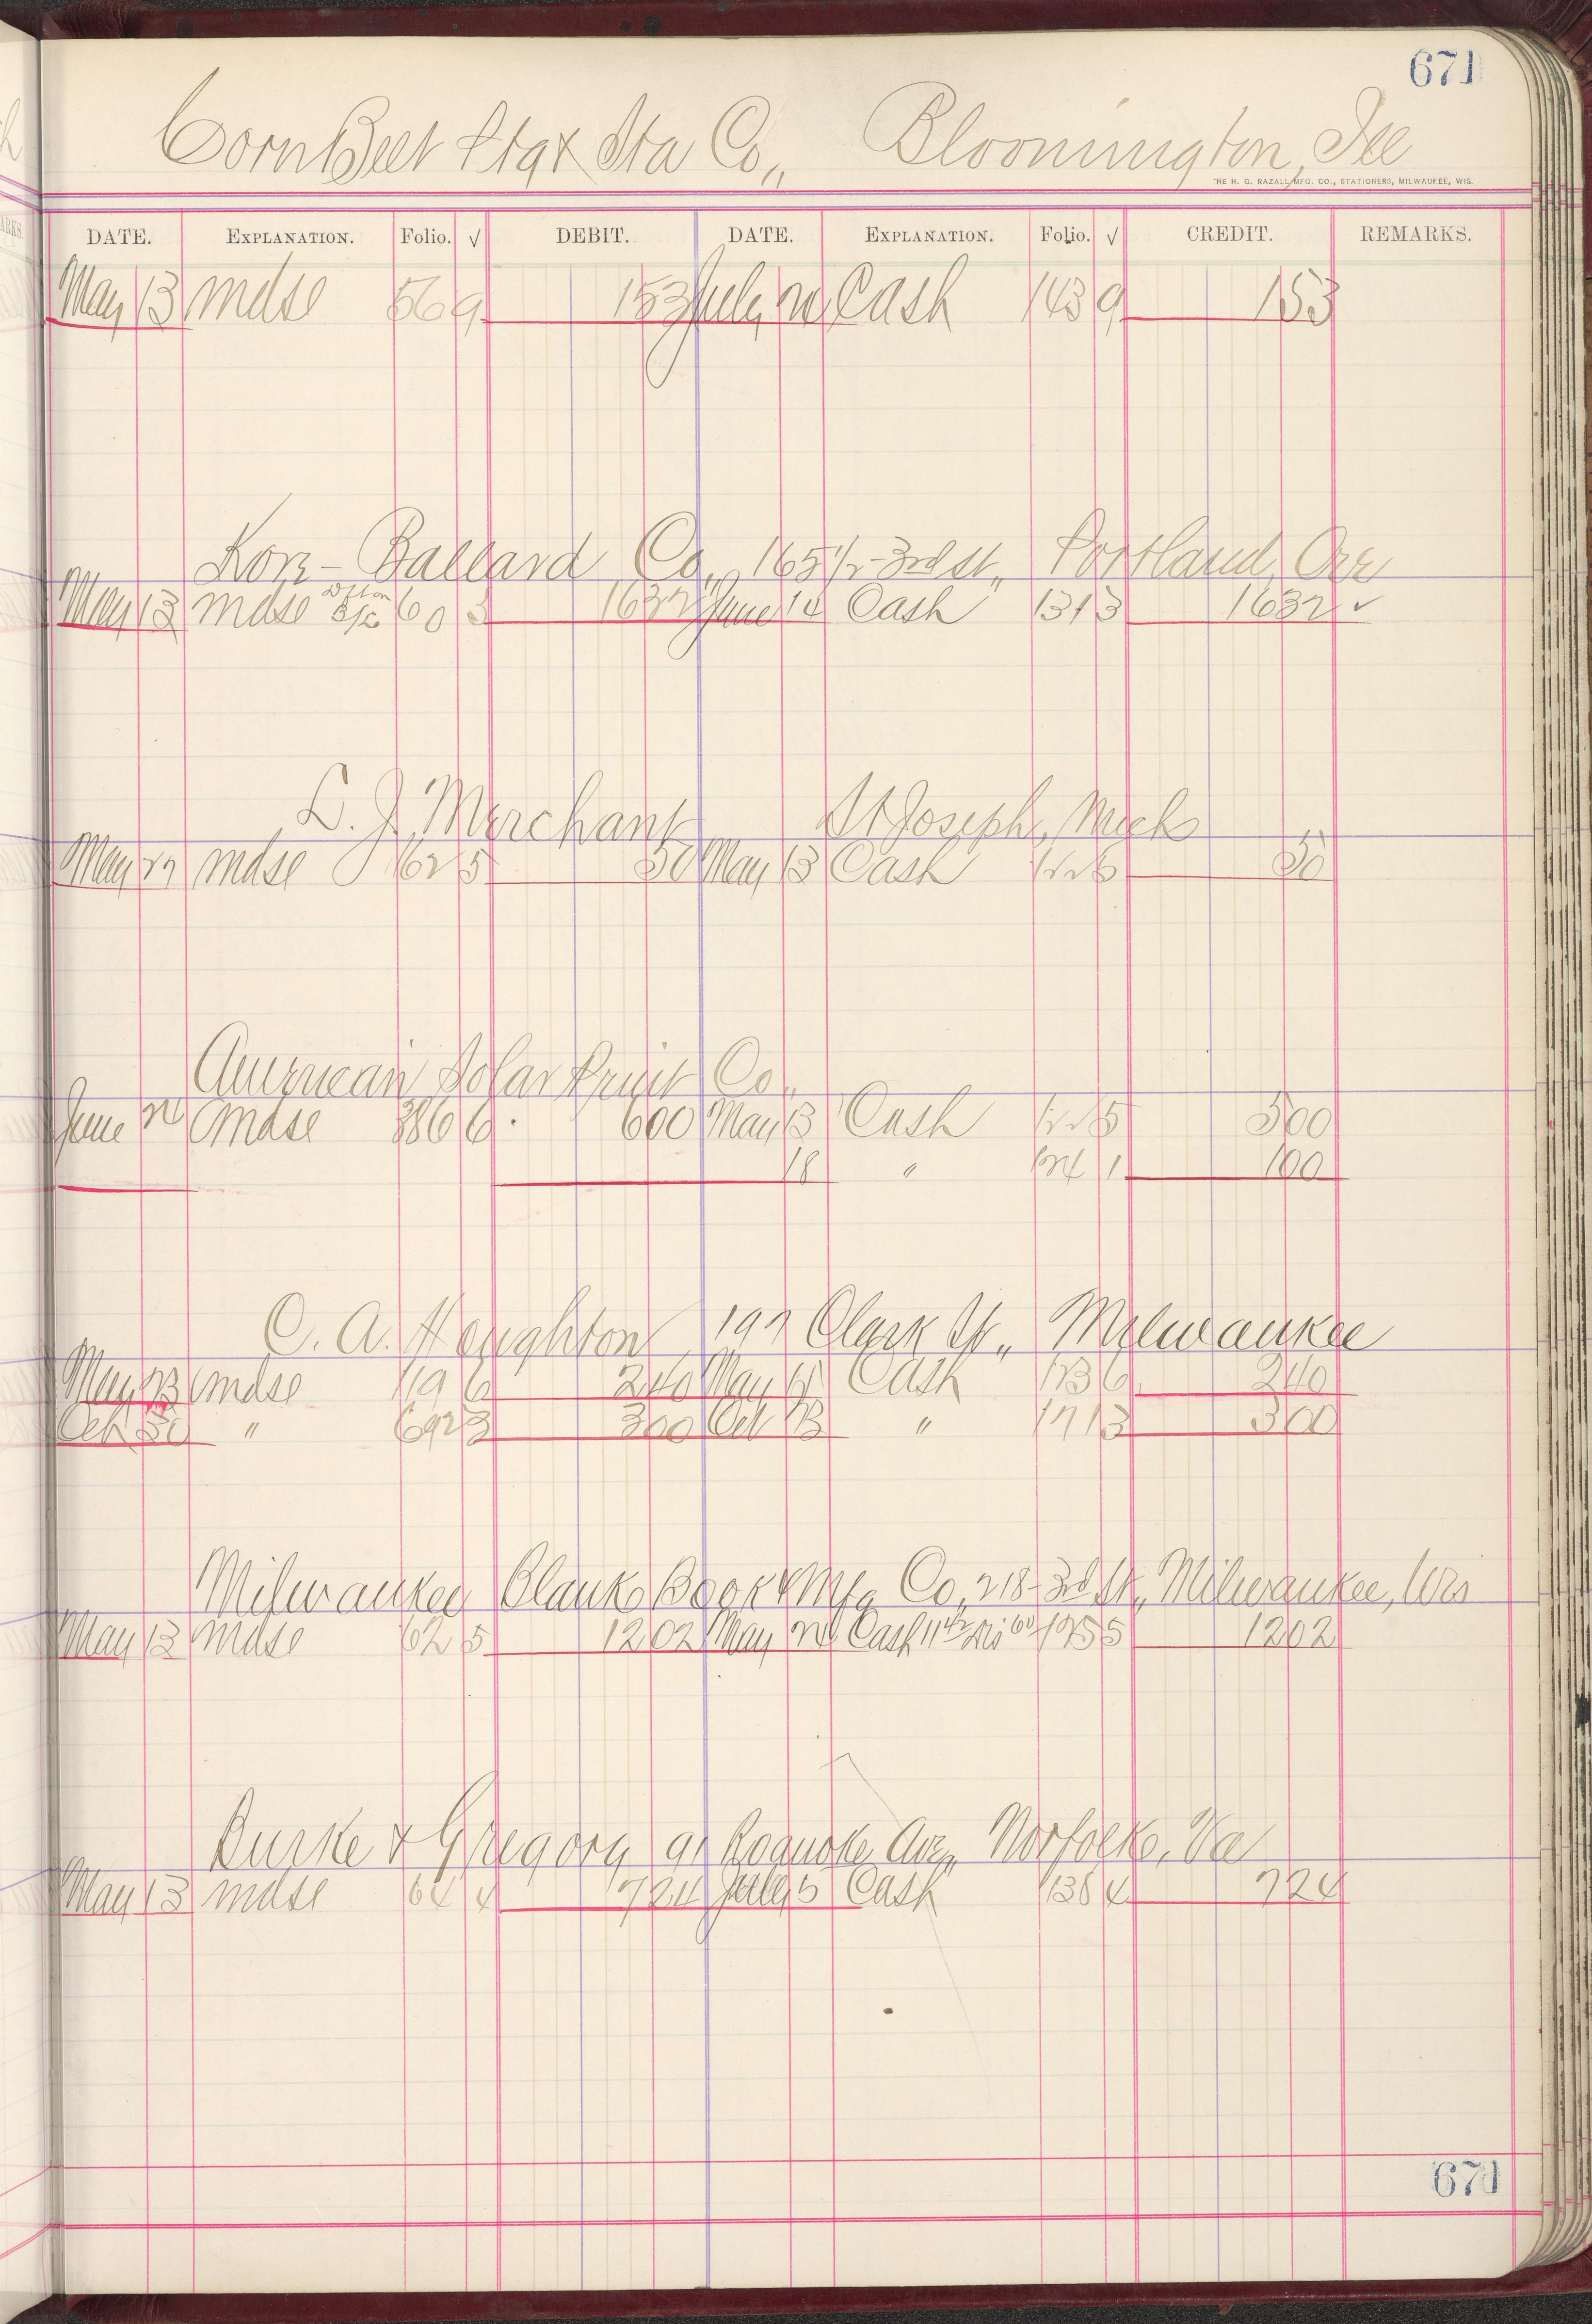 671
Corn Belt Ptg & Sta Co., Bloomington, Ill
THE H. G. RAZALL MFG. CO., STATIONERS, MILWAUKEE, WIS.
DATE. EXPLANATION. Folio. √ DEBIT. DATE. EXPLANATION. Folio. √ CREDIT. REMARKS.
May 13 Mdse 569 153 July Cash 1439 153
Ballard Co., 165 1/2 - 3rd St., Portland, Ore
May 13 Mdse 603 1632 June 14 Cash 1313 1632 ✓
L. J. Merchant St Joseph, Mich
May 27 Mdse 625 50 May 13 Cash 1226 50
American Solar Print Co.,
June Mdse 3866 600 May 13 Cash 1225 500
18 " 1241 100
C. A. Houghton 197 Clark St., Milwaukee
May 23 Mdse 1196 240 May Cash 1236 240
Oct 30 " 6923 300 Oct 13 " 1713 300
Milwaukee Blank Book & Mfg Co, 218-3d St, Milwaukee, Wis
May 13 Mdse 625 1202 May Cash 1255 1202
Burke & Gregory 91 Roanoke Ave., Norfolk, Va
May 13 Mdse 644 724 July 5 Cash 1384 724
671